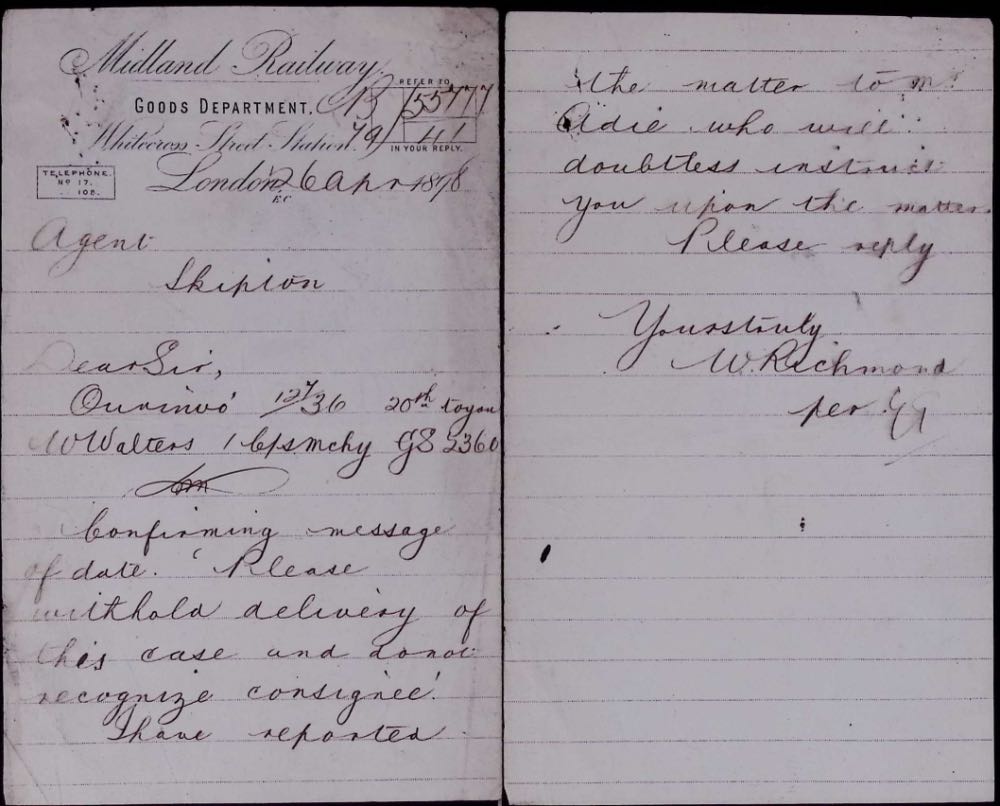 Midland Railway
GOODS DEPARTMENT.
REFER TO
B/55777
79/41
IN YOUR REPLY.
Whitecross Street Station.
TELEPHONE.
No 17.
108.
London 26 Apr 1898
E.C
Agent
Skipton
Dear Sir,
Our invo 12/36 20th to you
W Walters 1 C/s mchy GS 2360
Confirming message
of date. "Please
withhold delivery of
this case and donot
recognize consignee".
I have reported
the matter to Mr
Adie who will
doubtless instruct
you upon the matter.
Please reply
Yours truly
W. Richmond
per